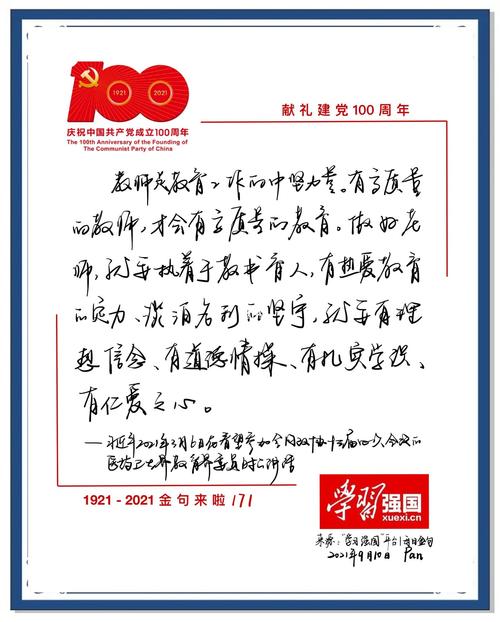 100
1921
2021
庆祝中国共产党成立100周年
The 100th Anniversary of the Founding of
The Communist Party of China
献礼建党100周年
教师是教育工作的中坚力量。有高质量
的教师，才会有高质量的教育。做好老
师，就要执着于教书育人，有热爱教育
的定力、淡泊名利的坚守，就要有理
想信念、有道德情操、有扎实学识、
有仁爱之心。
——习近平2021年3月6日在看望参加全国政协十三届四次会议的
医药卫生界教育界委员时的讲话
1921-2021金句来啦171
学习强国
xuexi.cn
来源："学习强国"平台|每日金句
2021年9月10日 Pan